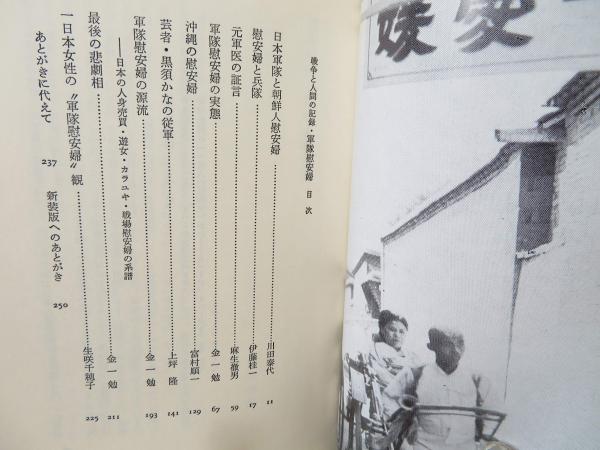 戦争と人間の記録・軍隊慰安婦　目次
日本軍隊と朝鮮人慰安婦……川田泰代 11
慰安婦と兵隊……伊藤桂一 17
元軍医の証言……麻生徹男 59
軍隊慰安婦の実態……金一勉 67
沖縄の慰安婦……富村順一 129
芸者・黒須かなの従軍……上坪隆 141
軍隊慰安婦の源流……金一勉 193
――日本の人身売買・遊女・カラユキ・戦場慰安婦の系譜
最後の悲劇相……金一勉 211
一日本女性の〝軍隊慰安婦〟観……生咲千穂子 225
あとがきに代えて 237
新装版へのあとがき 250